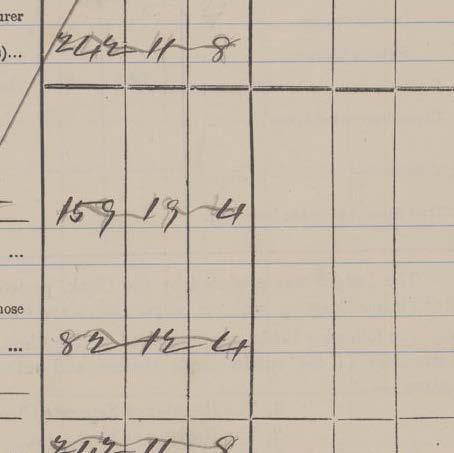 urer
)... 242 11 8
159 19 4
...
hose
... 82 12 4
242 11 8